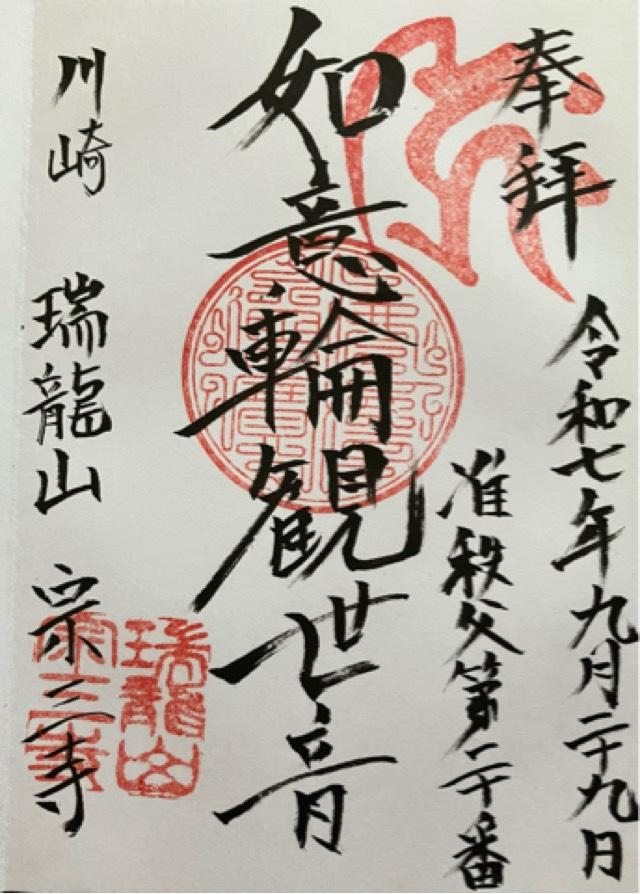 奉拝
令和七年九月二十九日
准秩父第二十番
如意輪観世音
川崎 瑞龍山 宗三寺
瑞龍山
宗三寺